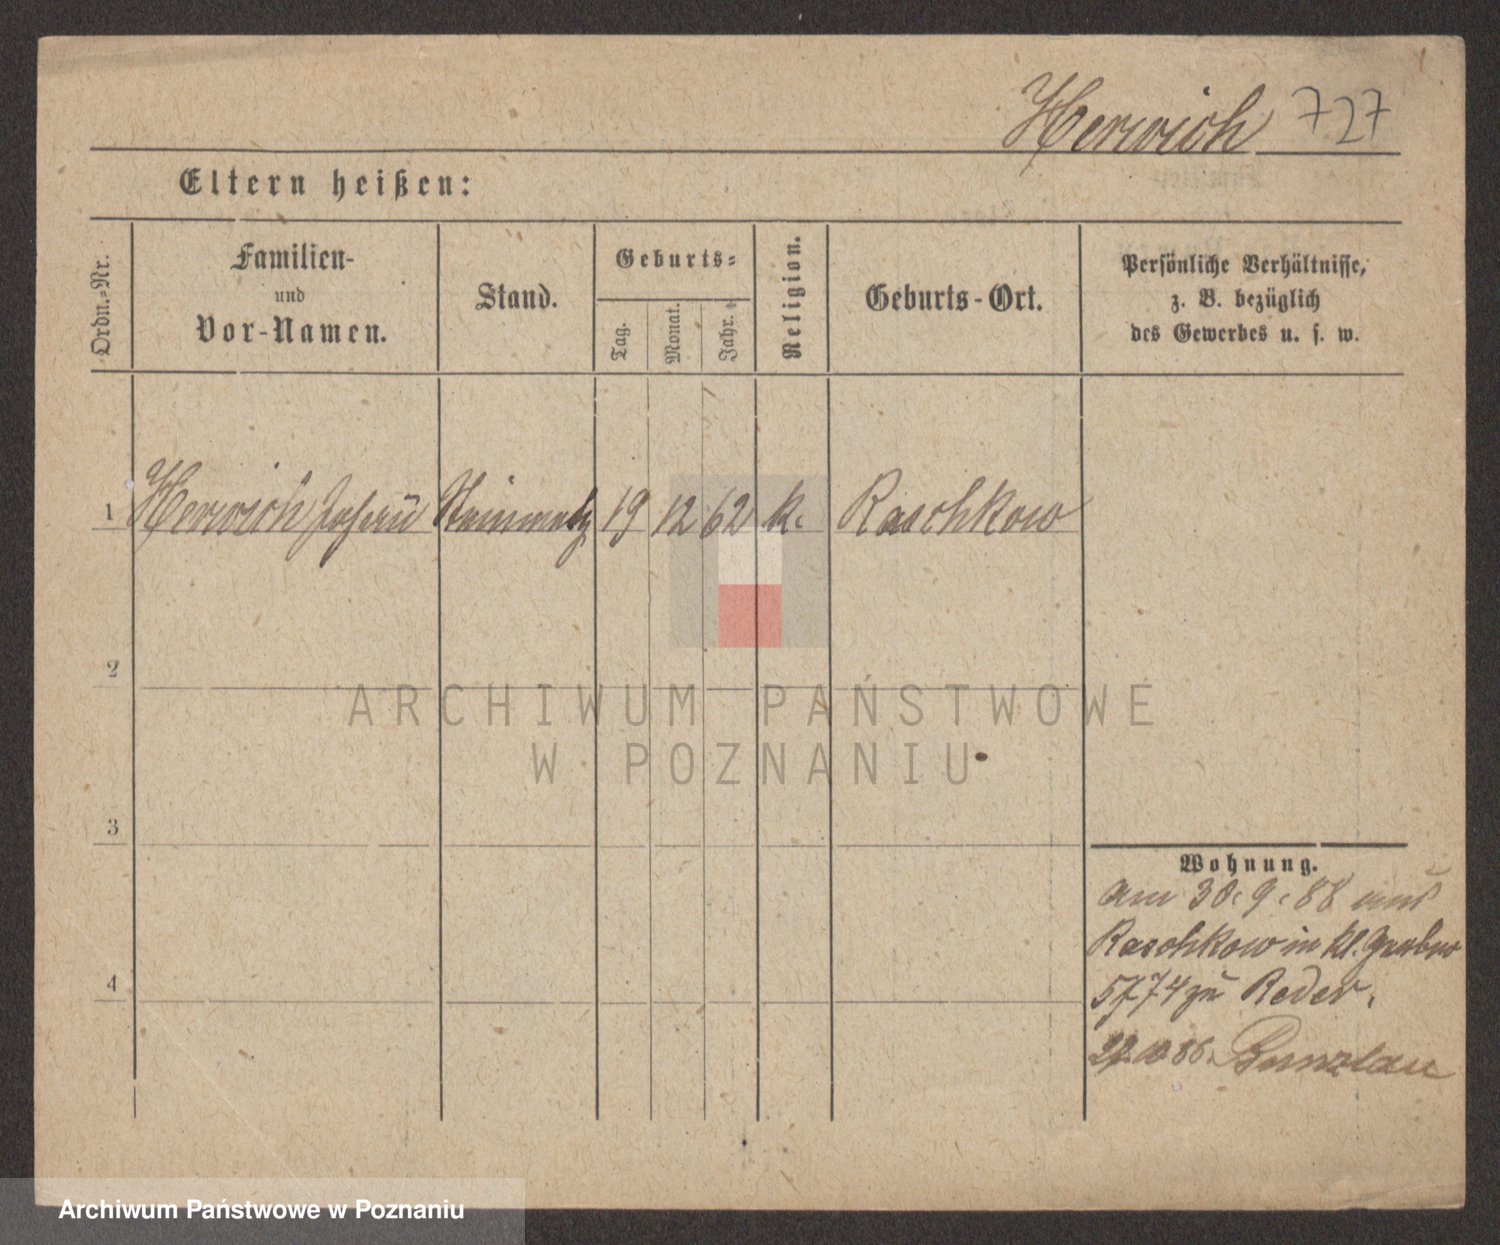 Herwich 727
Eltern heißen:
Ordn.-Nr.
Familien-
und
Vor-Namen.
Stand.
Geburts-
Tag.
Monat.
Jahr.
Religion.
Geburts-Ort.
Persönliche Verhältnisse,
z. B. bezüglich
des Gewerbes u. s. w.
1 Herwich Johann Steinmetz 19 12 62 k. Raschkow
2
3
4
Wohnung.
am 30.9.88 aus
Raschkow in kl. Gerber
5/74 zu Reder.
86. Bunzlau
ARCHIWUM PAŃSTWOWE
W POZNANIU
Archiwum Państwowe w Poznaniu